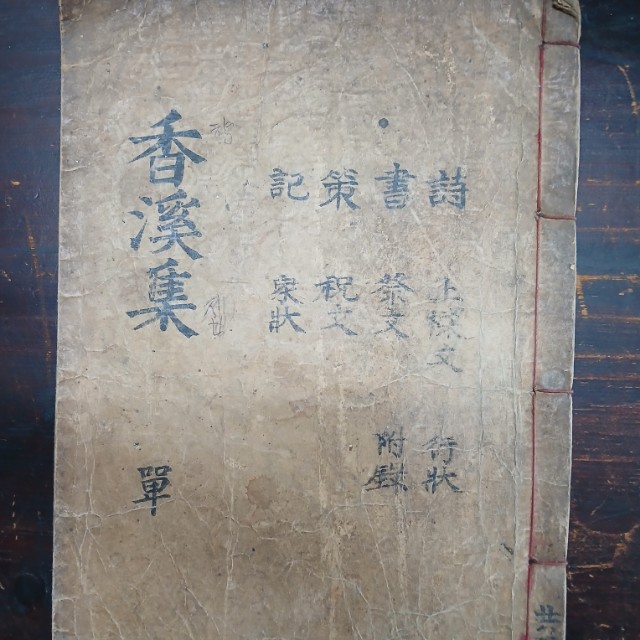 詩 行狀
書 祭文 附錄
策 祝文
記 家狀
香溪集 單